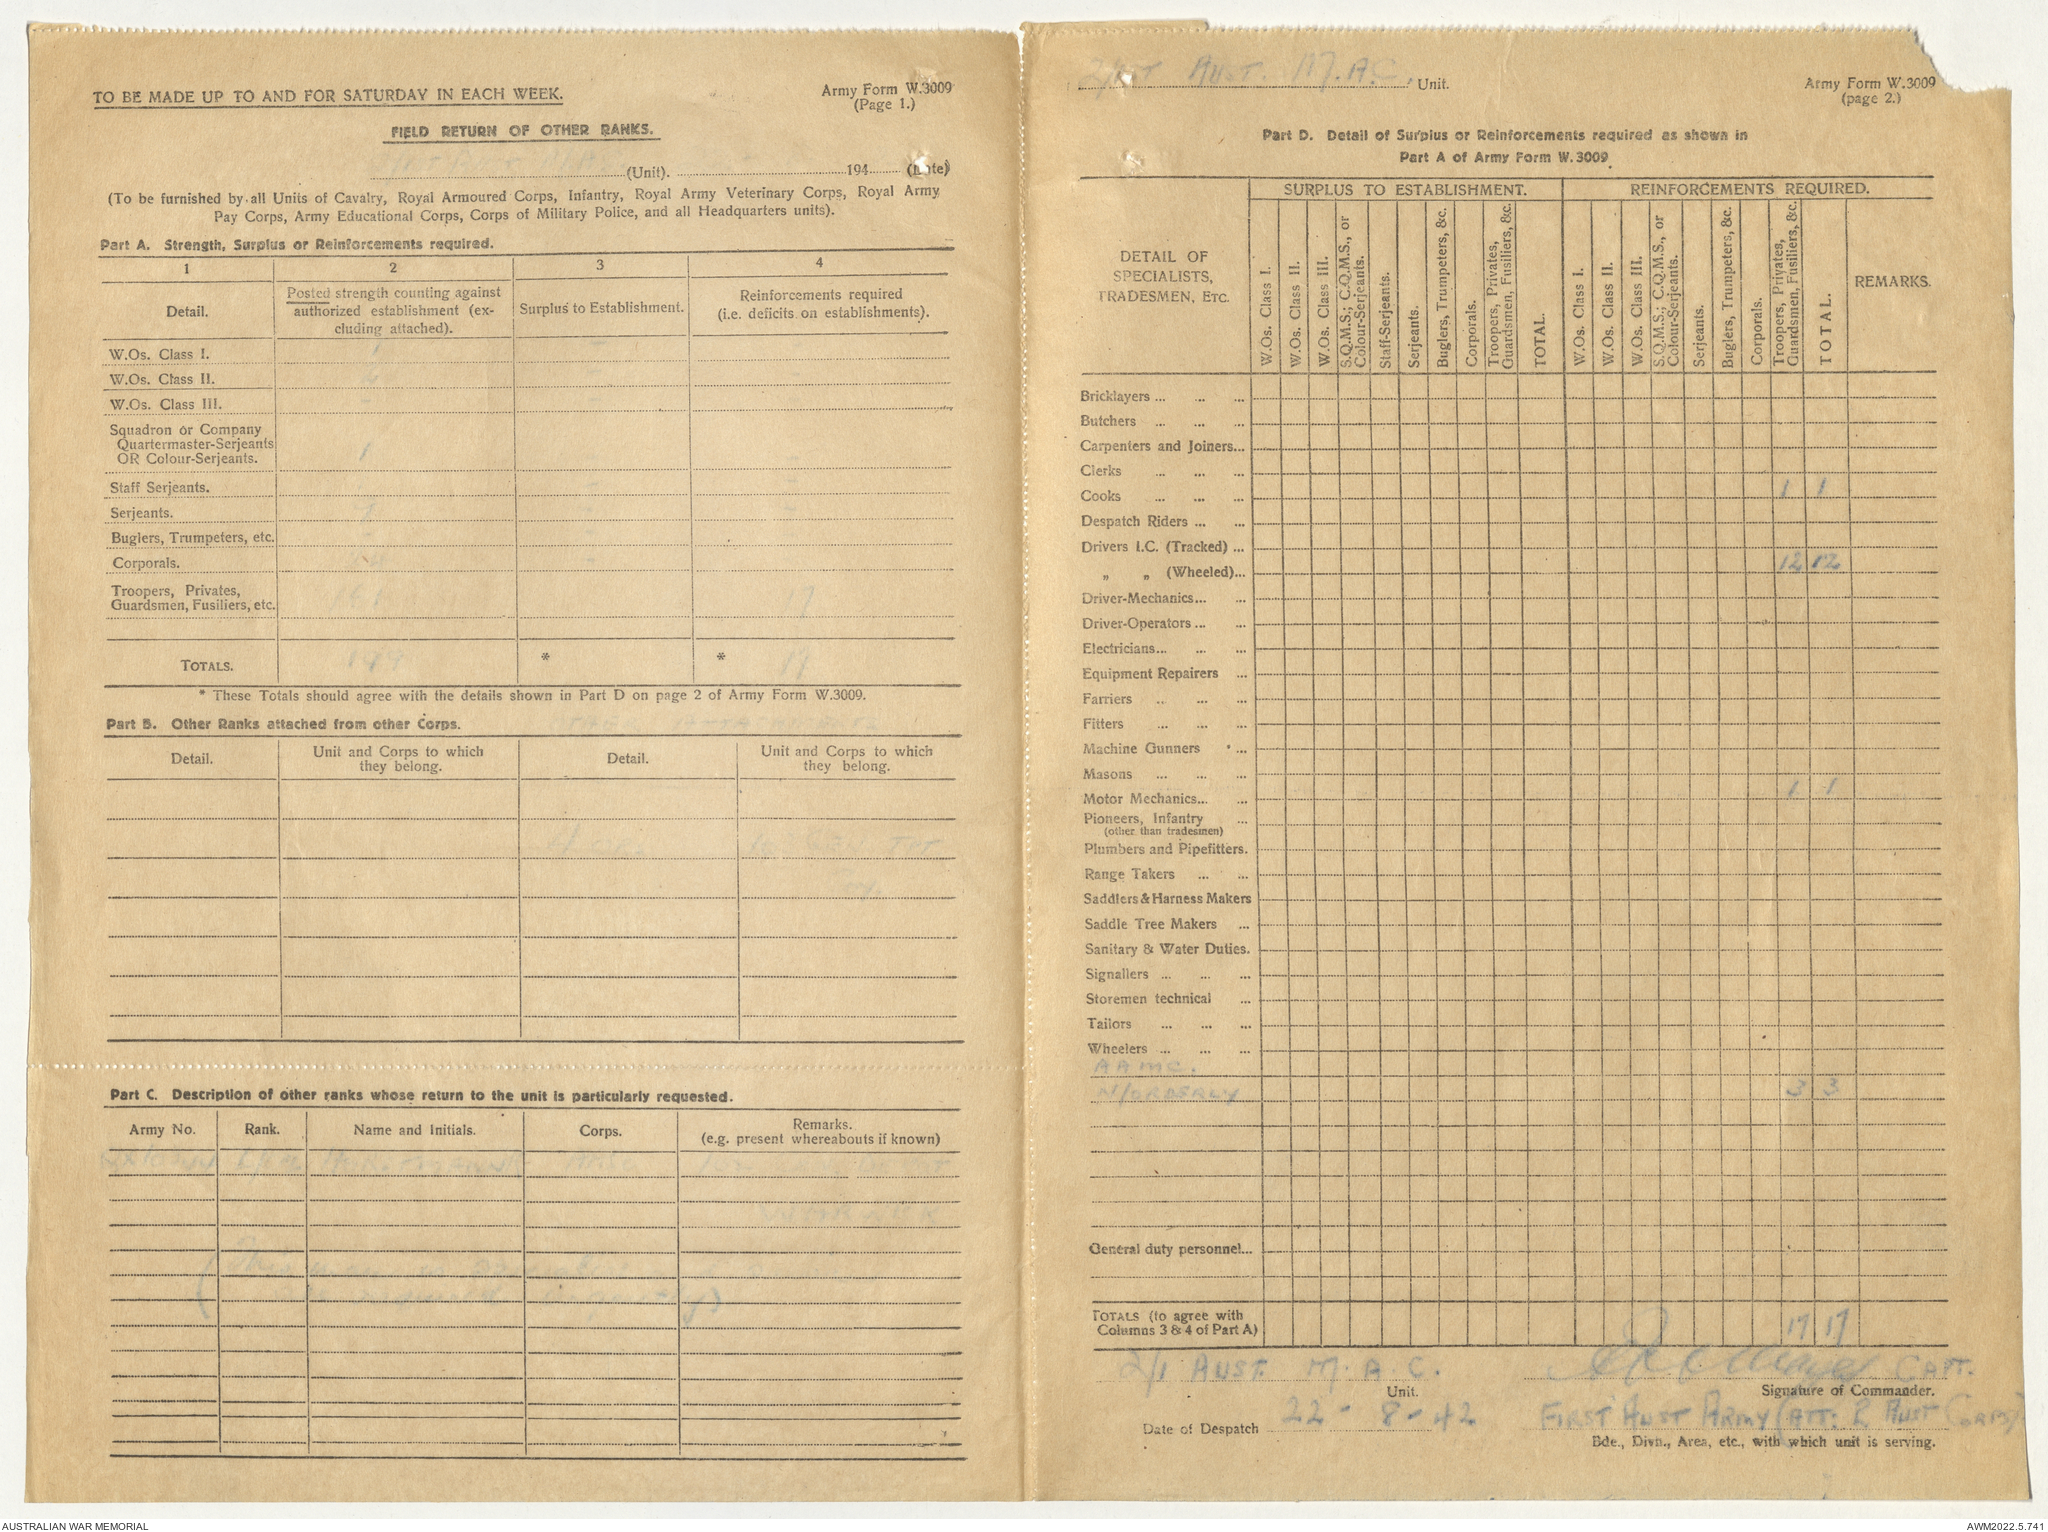 TO BE MADE UP TO AND FOR SATURDAY IN EACH WEEK.
Army Form W.3009
(Page 1.)
FIELD RETURN OF OTHER RANKS.
(Unit). 194 (Date)
(To be furnished by all Units of Cavalry, Royal Armoured Corps, Infantry, Royal Army Veterinary Corps, Royal Army
Pay Corps, Army Educational Corps, Corps of Military Police, and all Headquarters units).
Part A. Strength, Surplus or Reinforcements required.
1 2 3 4
Detail.
Posted strength counting against
authorized establishment (ex-
cluding attached).
Surplus to Establishment.
Reinforcements required
(i.e. deficits on establishments).
W.Os. Class I. 1
W.Os. Class II.
W.Os. Class III.
Squadron or Company
Quartermaster-Serjeants
OR Colour-Serjeants. 1
Staff Serjeants.
Serjeants.
Buglers, Trumpeters, etc.
Corporals.
Troopers, Privates,
Guardsmen, Fusiliers, etc. 17
TOTALS. 149 * * 17
* These Totals should agree with the details shown in Part D on page 2 of Army Form W.3009.
Part B. Other Ranks attached from other Corps.
Detail.
Unit and Corps to which
they belong.
Detail.
Unit and Corps to which
they belong.
Part C. Description of other ranks whose return to the unit is particularly requested.
Army No. Rank. Name and Initials. Corps.
Remarks.
(e.g. present whereabouts if known)
2/1st AUST. M.A.C. Unit.
Army Form W.3009
(page 2.)
Part D. Detail of Surplus or Reinforcements required as shown in
Part A of Army Form W.3009
DETAIL OF
SPECIALISTS,
TRADESMEN, ETC.
SURPLUS TO ESTABLISHMENT.
W.Os. Class I.
W.Os. Class II.
W.Os. Class III.
S.Q.M.S.; C.Q.M.S., or
Colour-Serjeants.
Staff-Serjeants.
Serjeants.
Buglers, Trumpeters, &c.
Corporals.
Troopers, Privates,
Guardsmen, Fusiliers, &c.
TOTAL.
REINFORCEMENTS REQUIRED.
W.Os. Class I.
W.Os. Class II.
W.Os. Class III.
S.Q.M.S.; C.Q.M.S., or
Colour-Serjeants.
Serjeants.
Buglers, Trumpeters, &c.
Corporals.
Troopers, Privates,
Guardsmen, Fusiliers, &c.
TOTAL.
REMARKS.
Bricklayers ... ... ...
Butchers ... ... ...
Carpenters and Joiners...
Clerks ... ... ...
Cooks ... ... ... 1 1
Despatch Riders ... ...
Drivers I.C. (Tracked) ...
„ „ (Wheeled)... 12 12
Driver-Mechanics... ...
Driver-Operators ... ...
Electricians... ... ...
Equipment Repairers ...
Farriers ... ... ...
Fitters ... ... ...
Machine Gunners ...
Masons ... ... ...
Motor Mechanics... ... 1 1
Pioneers, Infantry ...
(other than tradesmen)
Plumbers and Pipefitters.
Range Takers ... ...
Saddlers & Harness Makers
Saddle Tree Makers ...
Sanitary & Water Duties.
Signallers ... ... ...
Storemen technical ...
Tailors ... ... ...
Wheelers ... ... ...
AAMC.
N/ORDERLY 3 3
General duty personnel...
TOTALS (to agree with
Columns 3 & 4 of Part A) 17 17
2/1 AUST M.A.C. CAPT.
Unit.
Signature of Commander.
Date of Despatch 22-8-42
FIRST AUST ARMY (ATT: 2 AUST CORPS)
Bde., Divn., Area, etc., with which unit is serving.
AUSTRALIAN WAR MEMORIAL
AWM2022.5.741